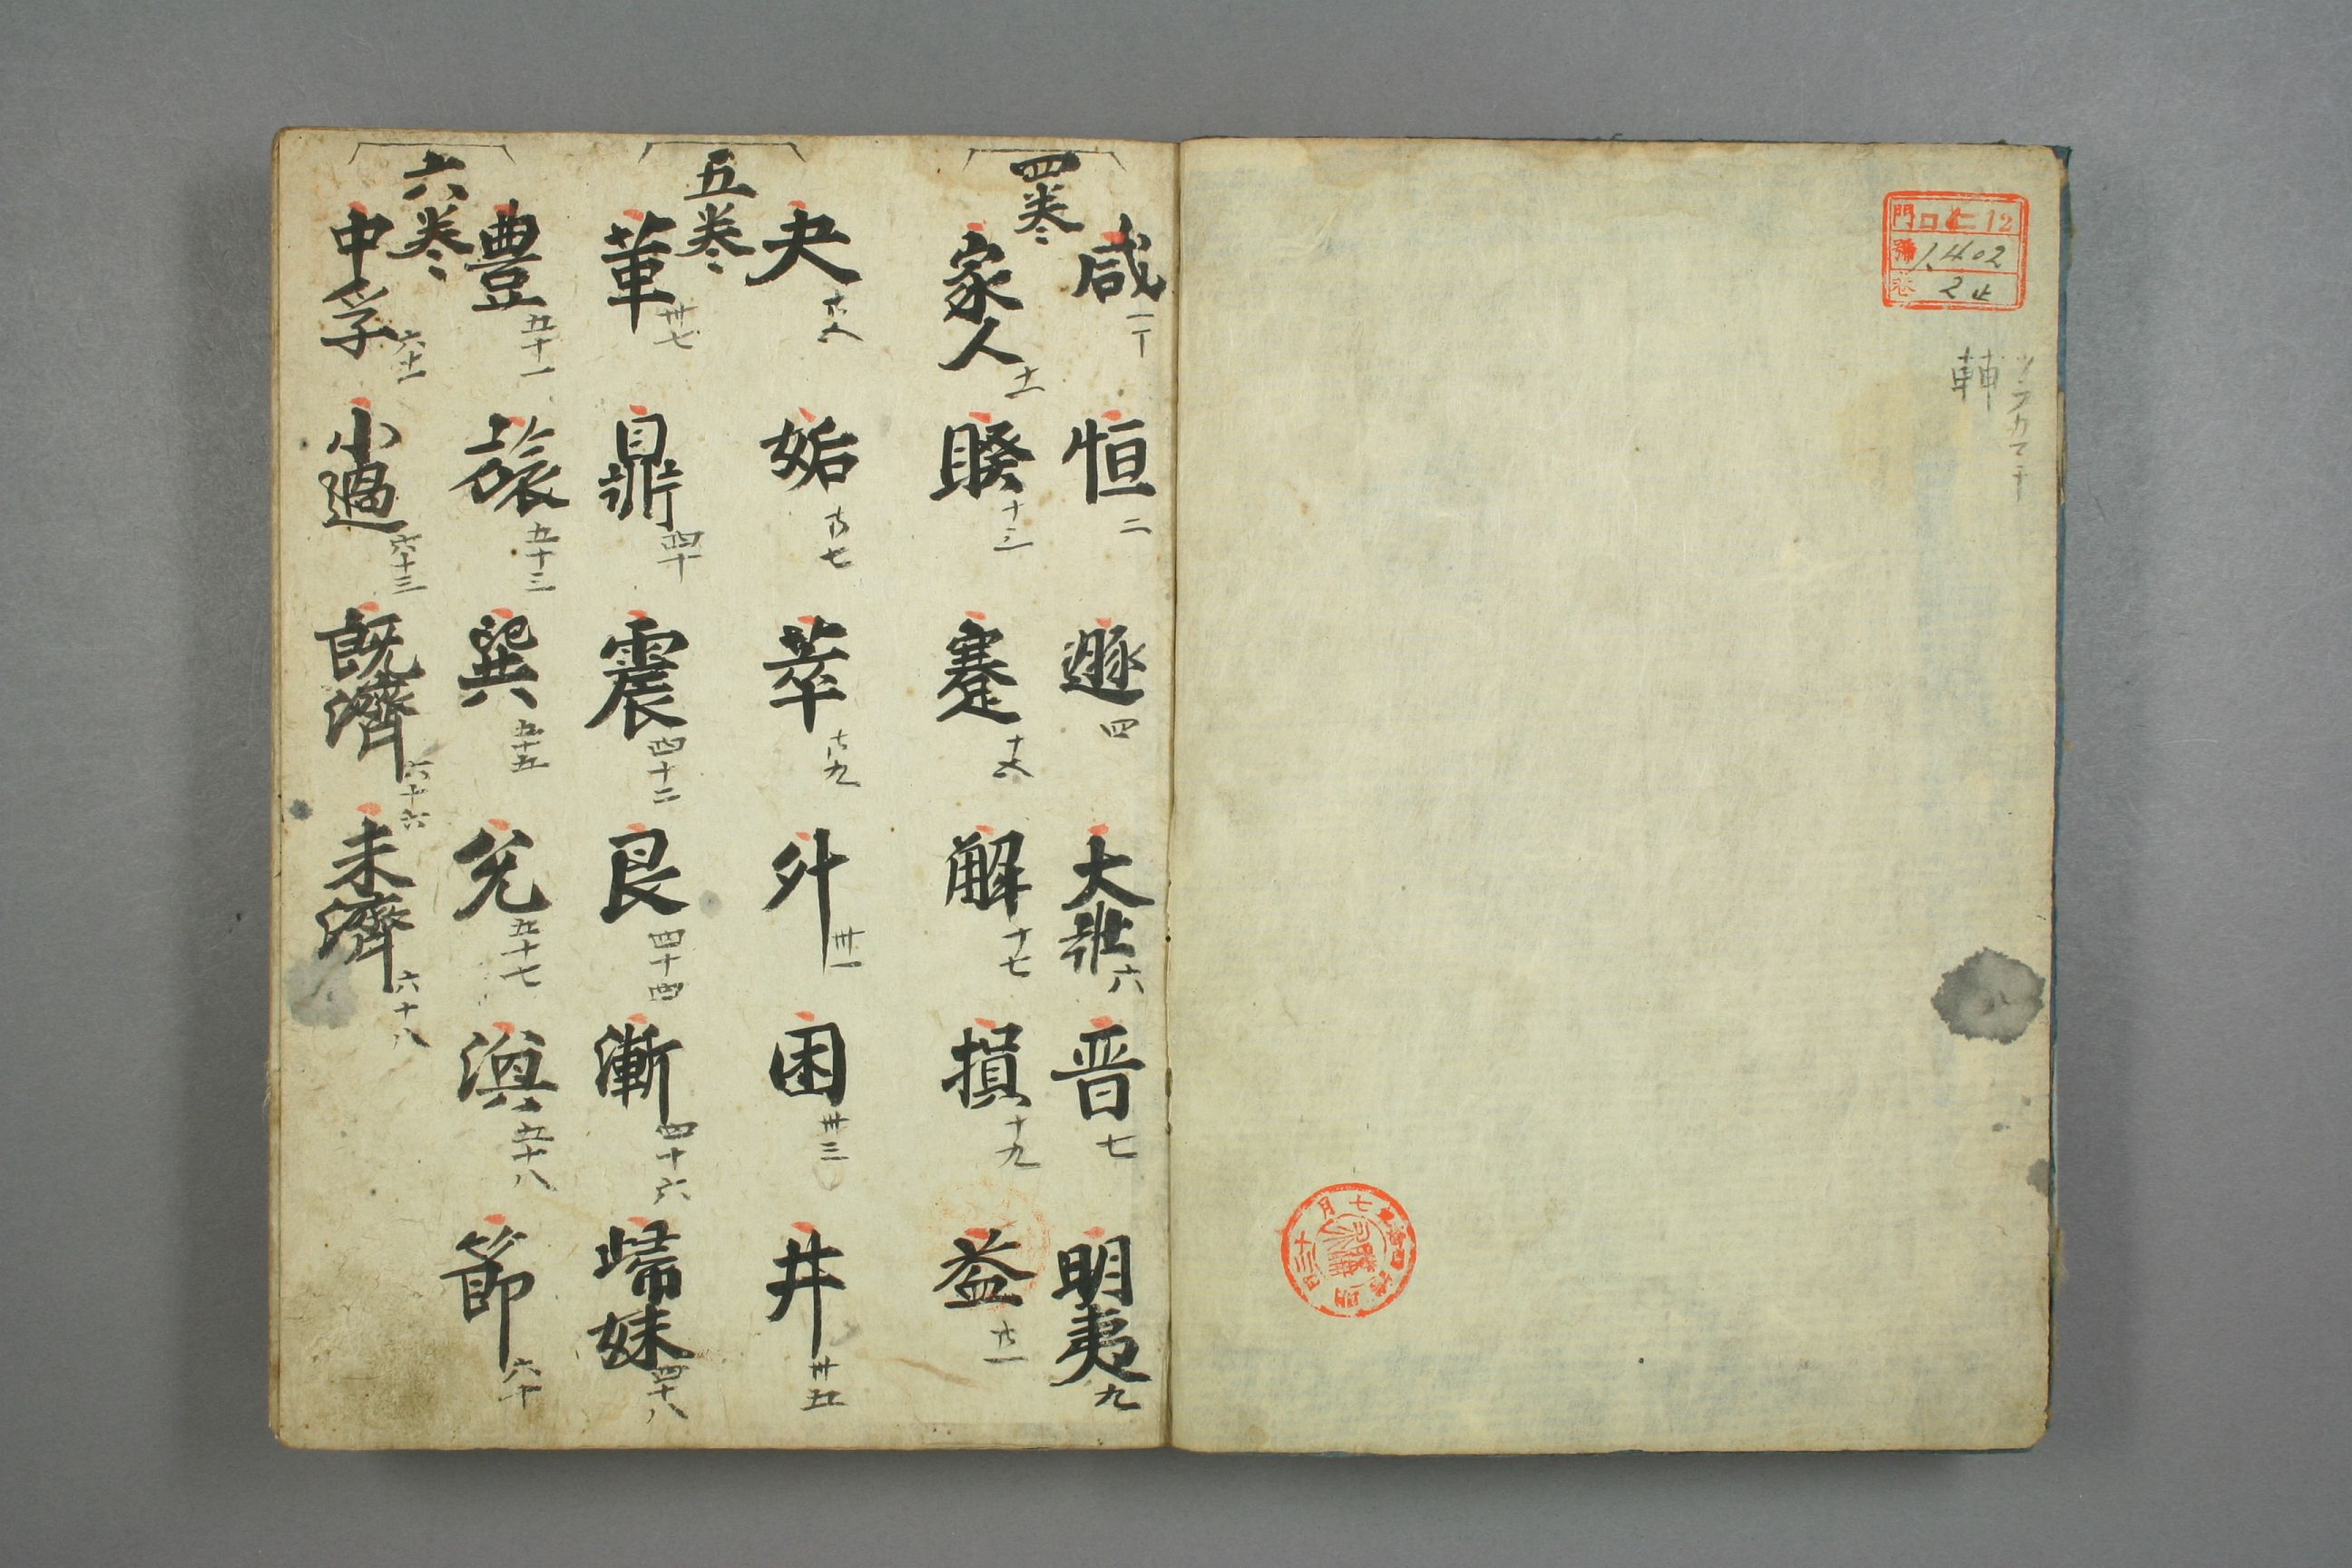 門 ロ 仁 12
號 1.402
巻 2 止
輔
四巻
咸 一丁 恒 二 遯 四 大壯 六 晋 七 明夷 九
家人 十一 睽 十三 蹇 十五 解 十七 損 十九 益 廿一
五巻
夬 廿五 姤 廿七 萃 廿九 升 卅一 困 卅三 井 卅五
革 卅七 鼎 四十 震 四十二 艮 四十四 漸 四十六 歸妹 四十八
六巻
豊 五十一 旅 五十三 巽 五十五 兌 五十七 渙 五十八 節 六十
中孚 六十一 小過 六十三 既濟 六十六 未濟 六十八